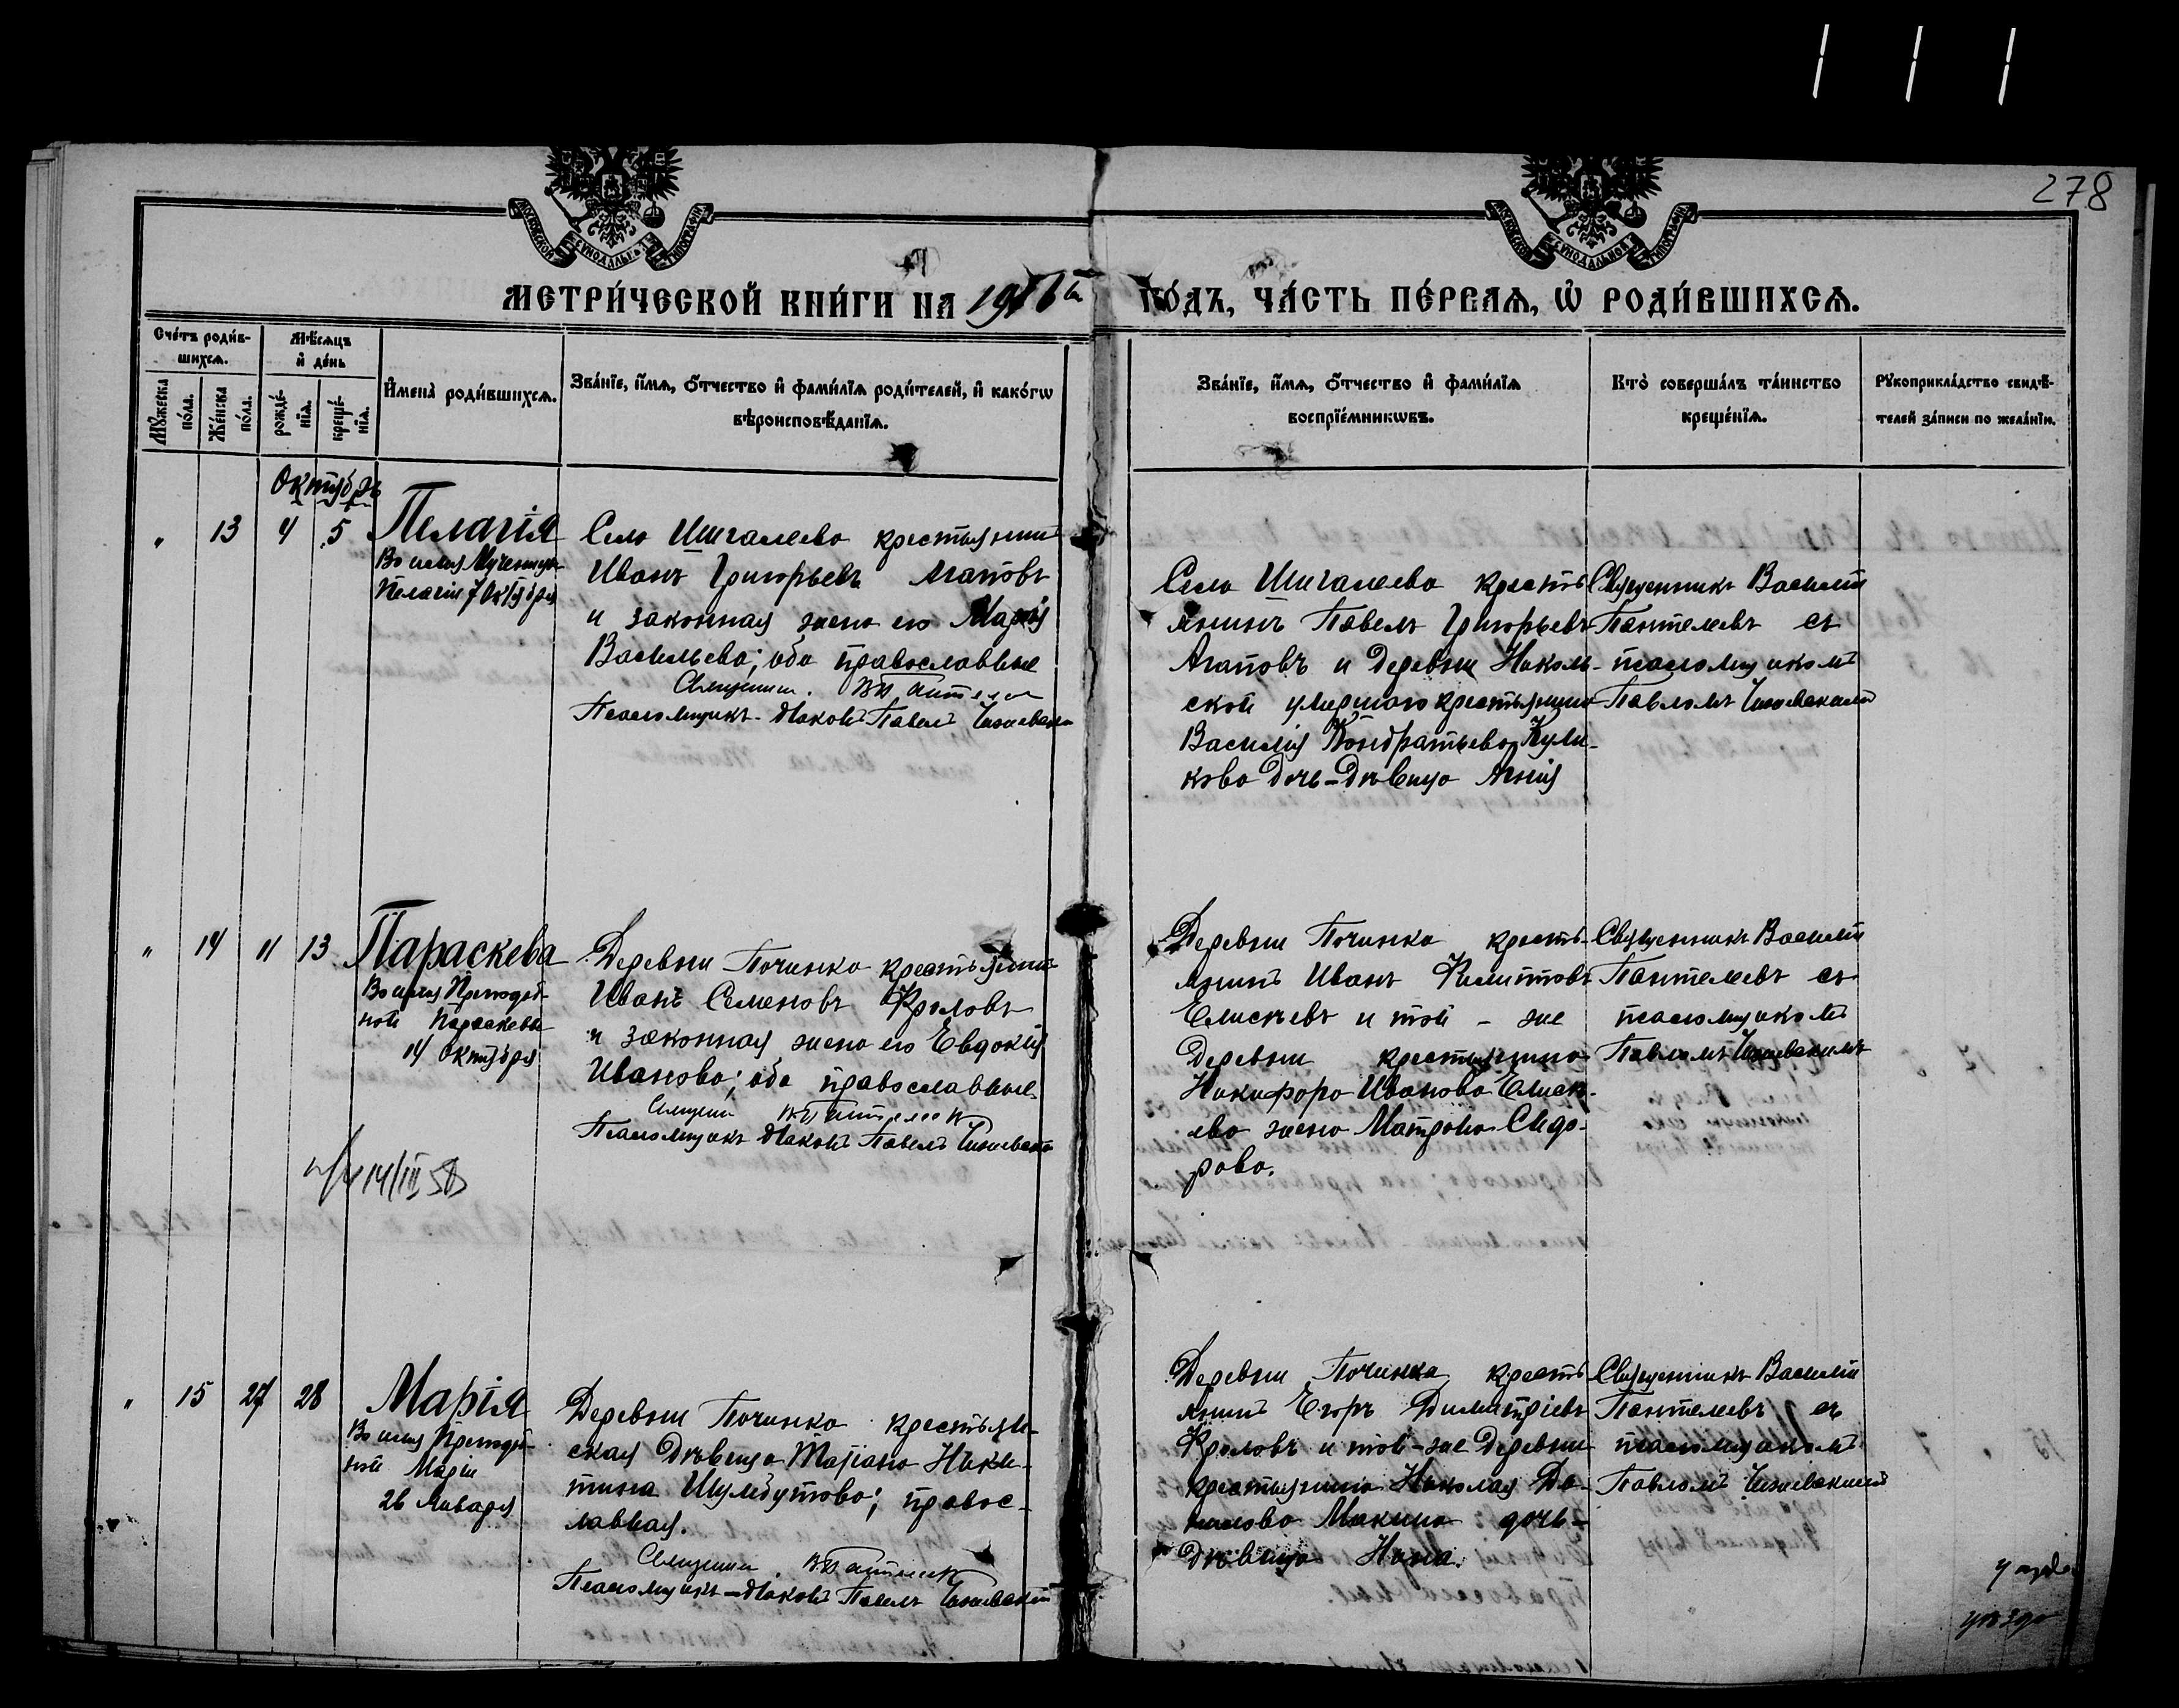 278
МОСКОВСКОЙ СѴНОДАЛЬН. ТИПОГРАФІИ
МОСКОВСКОЙ СѴНОДАЛЬНОЙ ТИПОГРАФІИ
МЕТРИ́ЧЕСКОЙ КНИ́ГИ НА 1916й ГО́ДЪ, ЧА́СТЬ ПЕ́РВАѦ, Ѡ҆ РОДИ́ВШИХСѦ.
Сче́тъ роди́в-
шихсѧ.
Мꙋ́жеска по́ла.
Же́нска по́ла.
Мѣ́сѧцъ
и҆ де́нь
рожде́-
нїѧ.
креще́-
нїѧ.
И҆мена̀ роди́вшихсѧ.
Зва́нїе, и҆́мѧ, ѻ҆́тчество и҆ фами́лїѧ роди́телей, и҆ како́гѡ
вѣроисповѣ́данїѧ.
Зва́нїе, и҆́мѧ, ѻ҆́тчество и҆ фами́лїѧ
воспрїе́мникѡвъ.
Кто̀ соверша́лъ та́инство
креще́нїѧ.
Рꙋкоприкла́дство свидѣ́-
телей за́писи по жела́нїю.
Октябрь
" 13 4 5 Пелагія
Во имя Мученицы
Пелагіи 7 Октября
Село Шигалеево крестьянинъ
Иванъ Григорьевъ Агаповъ
и законная жена его Марія
Васильева; оба православные
Священник. В. Пантелеев
Псаломщикъ-діаконъ Павелъ
Село Шигалеево кресть
янинъ Павелъ Григорьевъ
Агаповъ и Деревни Николь-
ской умершаго крестьянина
Василія Кондратьева Кули-
кова дочь-дѣвица Агнія
Священникъ Василій
Пантелеевъ съ
псаломщикомъ
Павломъ
" 14 11 13 Параскева
Во имя Преподоб-
ной Параскевы
14 Октября
Деревни Починка крестьянинъ
Иванъ Семеновъ Фроловъ
и законная жена его Евдокія
Иванова; оба православные.
Священ. В. Пантелеев
Псаломщикъ діаконъ Павелъ
14/III 58
Деревни Починка кресть-
янинъ Иванъ Филипповъ
Елисѣевъ и той - же
деревни крестьянина
Никифора Иванова Елисѣ-
ева жена Матрона Сидо-
рова.
Священникъ Василій
Пантелеевъ съ
псаломщикомъ
Павломъ
" 15 27 28 Марія
Во имя Преподоб-
ной Маріи
26 Января
Деревни Починка крестьян-
ская дѣвица Татіана Ники-
тина Шулбутова; правос-
лавная.
Священник. В. Пантелеев
Псаломщикъ-діаконъ Павелъ
Деревни Починка кресть
янинъ Егоръ Димитріевъ
Фроловъ и той-же деревни
крестьянина Николая Да-
нилова Макина дочь-
дѣвица Нина.
Священникъ Василій
Пантелеевъ съ
псаломщикомъ
Павломъ